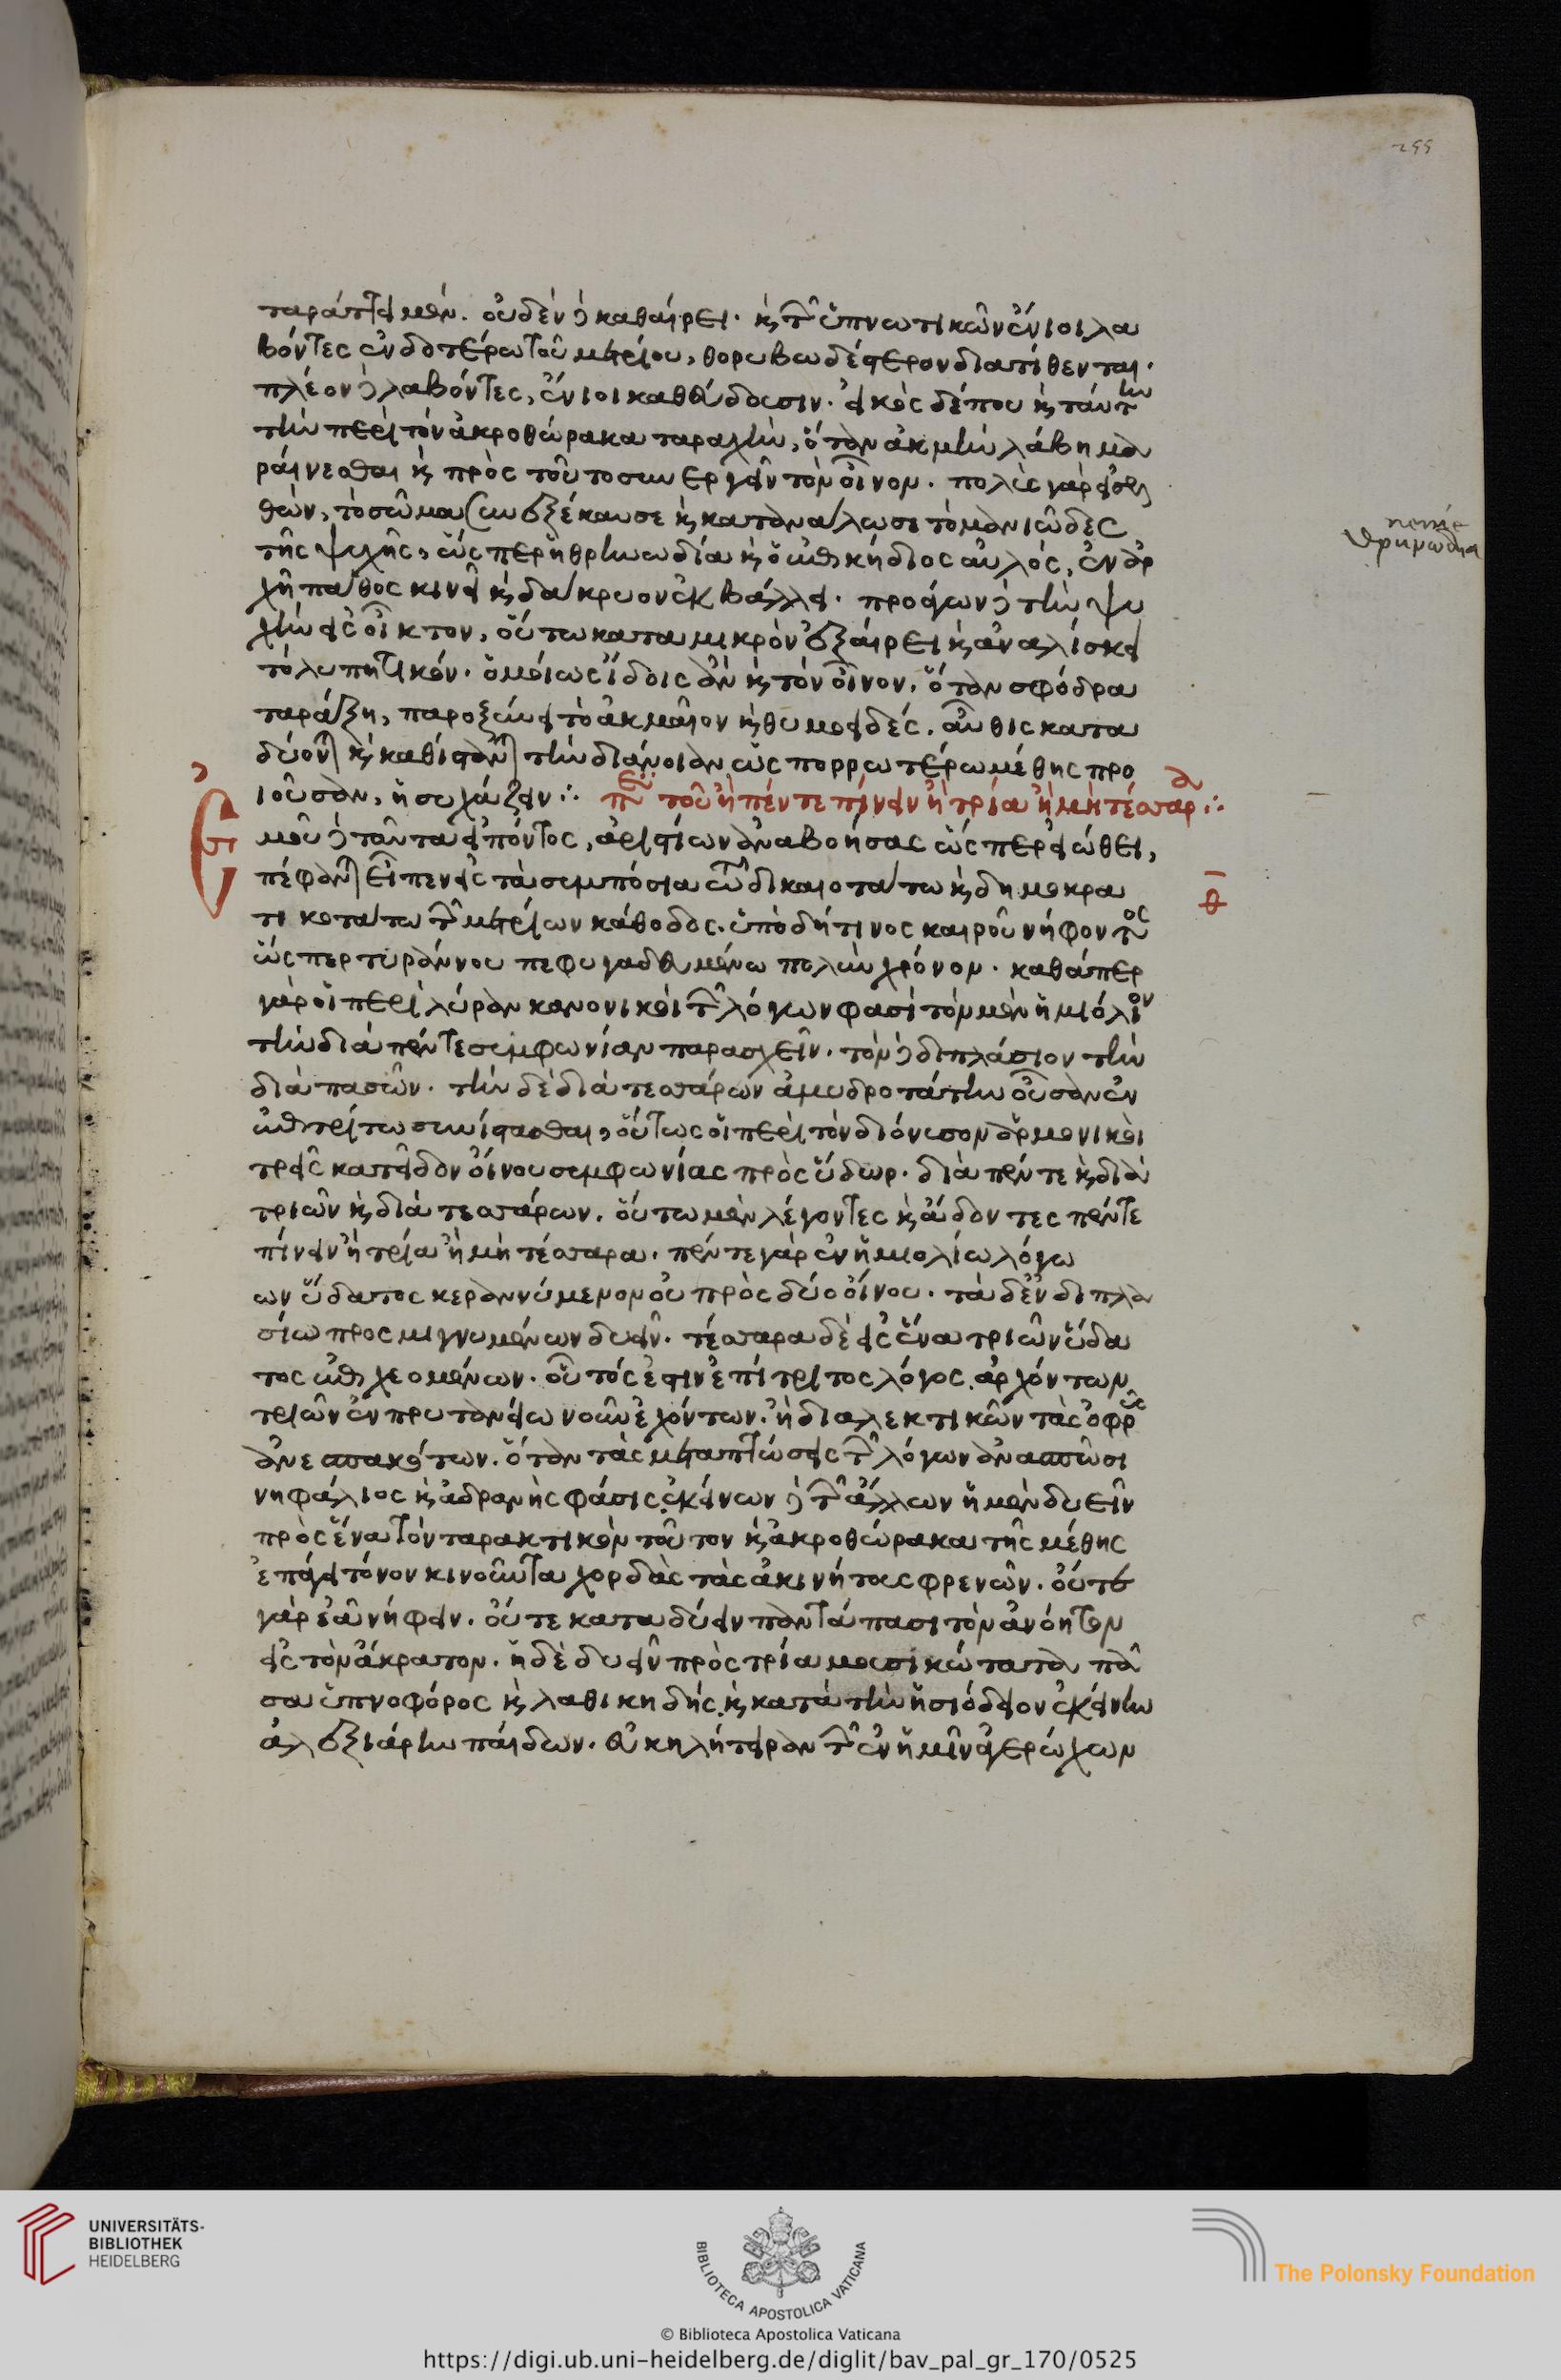 299
ταράττει μὲν. οὐδὲν δὲ καθαίρει. ϗ τῶν ὑπνωτικῶν ἔνιοι λα
βόντες ἐνδοτέρω τοῦ μετρίου, θορυβωδέστερον διατίθενται.
πλέον δὲ λαβόντες, ἔνιοι καθεύδουσιν. εἰκὸς δέπου ϗ ταύτην
τὴν περὶ τὸν ἀκροθώρακα ταραχὴν, ὅταν ἀκμὴν λάβη μα
ραίνεσθαι ϗ πρὸς τοῦτο συνεργεῖν τὸν οἶνον. πολὺς γὰρ εἰσελ
θὼν, τὸ σῶμα συνεξέκαυσε ϗ κατανάλωσε τὸ μανιῶδες
τῆς ψυχῆς, ὥσπερ ἡ θρηνωδία ϗ ὁ ἐπικήδιος αὐλὸς, ἐν ἀρ
χῆ πάθος κινεῖ ϗ δάκρυον ἐκβάλλει. προάγων δὲ τὴν ψυ
χὴν εἰς οἶκτον, οὕτω κατα μικρὸν ἐξαίρει ϗ ἀναλίσκει
τὸ λυπητικόν. ὁμοίως ἴδοις ἂν ϗ τὸν οἶνον, ὅταν σφόδρα
ταράξη, παροξύνει τὸ ἀκμαῖον ϗ θυμοειδές. αὖθις κατα
δύονται ϗ καθίστανται τὴν διάνοιαν ὡς πορρωτέρω μέθης προ
ϊοῦσαν, ἡσυχάζειν ∴ περὶ τοῦ ἢ πέντε πίνειν ἢ τρία ἢ μὴ τέσσαρα ∴
Ἐμοῦ δὲ ταῦτα εἰπόντος, ἀριστίων ἀναβοήσας ὥσπερ εἰώθει,
πέφανται εἶπεν εἰς τὰ συμπόσια τῶ δικαιοτάτω ϗ δημοκρα
θ̅
τικοτάτω τῶν μετρίων κάθοδος. ὑπὸ δή τινος καιροῦ νήφοντος
ὥσπερ τυράννου πεφυγαδευμένω πολὺν χρόνον. καθάπερ
γὰρ οἱ περὶ λύραν κανονικοὶ τῶν λόγων φασὶ τὸν μὲν ἡμιόλιον
τὴν διὰ πέντε συμφωνίαν παρασχεῖν. τὸν δὲ διπλάσιον τὴν
διὰ πασῶν. τὴν δὲ διὰ τεσσάρων ἀμυδροτάτην οὖσαν ἐν
ἐπιτρίτω συνίστασθαι, οὕτως οἱ περὶ τὸν διόνυσον ἁρμονικοὶ
τρεῖς κατεῖδον οἴνου συμφωνίας πρὸς ὕδωρ. διὰ πέντε ϗ διὰ
τριῶν ϗ διὰ τεσσάρων. οὕτω μὲν λέγοντες ϗ ἄδοντες πέντε
πίνειν ἢ τρία ἢ μὴ τέσσαρα. πέντε γὰρ ἐν ἡμιολίω λόγω
ων ὕδατος κεραννύμενον οὐ πρὸς δύο οἴνου. τὰ δ' ἐν διπλα
σίω προς μιγνυμένων δυεῖν. τέσσαρα δὲ εἰς ἕνα τριῶν ὕδα
τος ἐπιχεομένων. οὗτός ἐστιν ἐπίτριτος λόγος ἀρχόντων
τριῶν ἐν πρυτανείω νοῦν ἐχόντων. ἢ διαλεκτικῶν τὰς ὀφρῦς
ἀνεσπακότων. ὅταν τὰς μεταπτώσεις τῶν λόγων ἀνασπῶσι
νηφάλιος ϗ ἀδρανὴς φάσις ἐκείνων δὲ τῶν ἄλλων ἡ μὲν δυεῖν
πρὸς ἕνα τὸν ταρακτικὸν τοῦτον ϗ ἀκροθώρακα τῆς μέθης
ἐπάγει τόνον κινοῦντα χορδὰς τὰς ἀκινήτους φρενῶν. οὔτε
γὰρ ἐᾶ νήφειν. οὔτε καταδύειν παντάπασι τὸν ἀνόητον
εἰς τὸν ἄκρατον. ἡ δὲ δυεῖν πρὸς τρία μουσικώτατα πᾶ
σα ὑπνοφόρος ϗ λαθικηδής. ϗ κατὰ τὴν ἡσιόδειον ἐκείνην
ἀλεξιάρην παίδων. εὐκηλήτειραν τῶν ἐν ἡμῖν ἀγερώχων
θρηνωδία
UNIVERSITÄTS-
BIBLIOTHEK
HEIDELBERG
BIBLIOTECA APOSTOLICA VATICANA
The Polonsky Foundation
© Biblioteca Apostolica Vaticana
https://digi.ub.uni-heidelberg.de/diglit/bav_pal_gr_170/0525